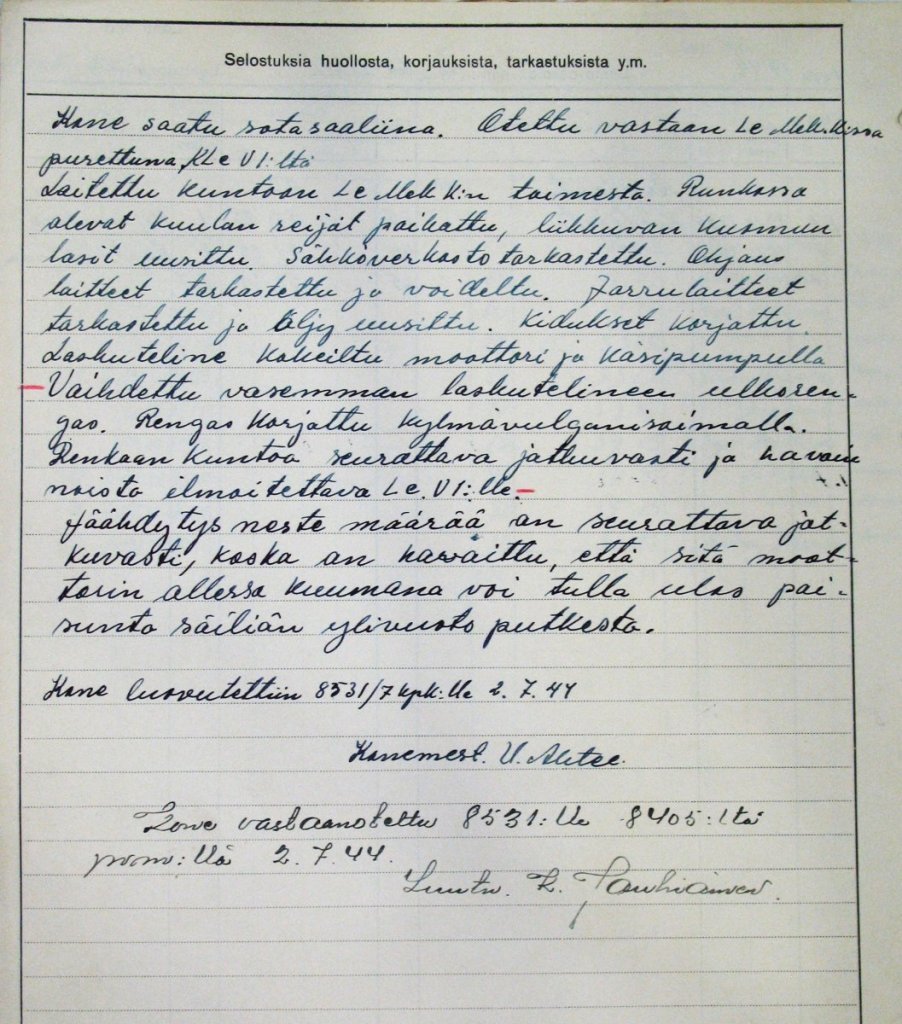 Selostuksia huollosta, korjauksista, tarkastuksista y.m.
Kone saatu sotasaaliina. Otettu vastaan Le Mek.Kissa
purettuna, KLe V1:ltä
Laitettu kuntoon Le Mek K:n toimesta. Runkossa
olevat kuulan reijät paikattu, liikkuvan kuomun
lasit uusittu. Sähköverkosto tarkastettu. Ohjaus
laitteet tarkastettu ja voideltu. Jarrulaitteet
tarkastettu ja öljy uusittu. Kidukset korjattu.
Laskuteline kokeiltu moottori ja käsipumpulla
– Vaihdettu vasemman laskutelineen ulkoren-
gas. Rengas korjattu kylmävulganisoimalla.
Renkaan kuntoa seurattava jatkuvasti ja havain
noista ilmoitettava Le. V1:lle. –
Jäähdytys neste määrää on seurattava jat-
kuvasti, koska on havaittu, että sitä moot-
torin ollessa kuumana voi tulla ulos pai-
sunta säiliön ylivuoto putkesta.
Kone luovutettiin 8531/7 kpk:lle 2. 7. 44
Konemest. V. Ahtee.
Kone vastaanotettu 8531:lle 8405:ltä
pvm:llä 2. 7. 44.
Luutn. K.